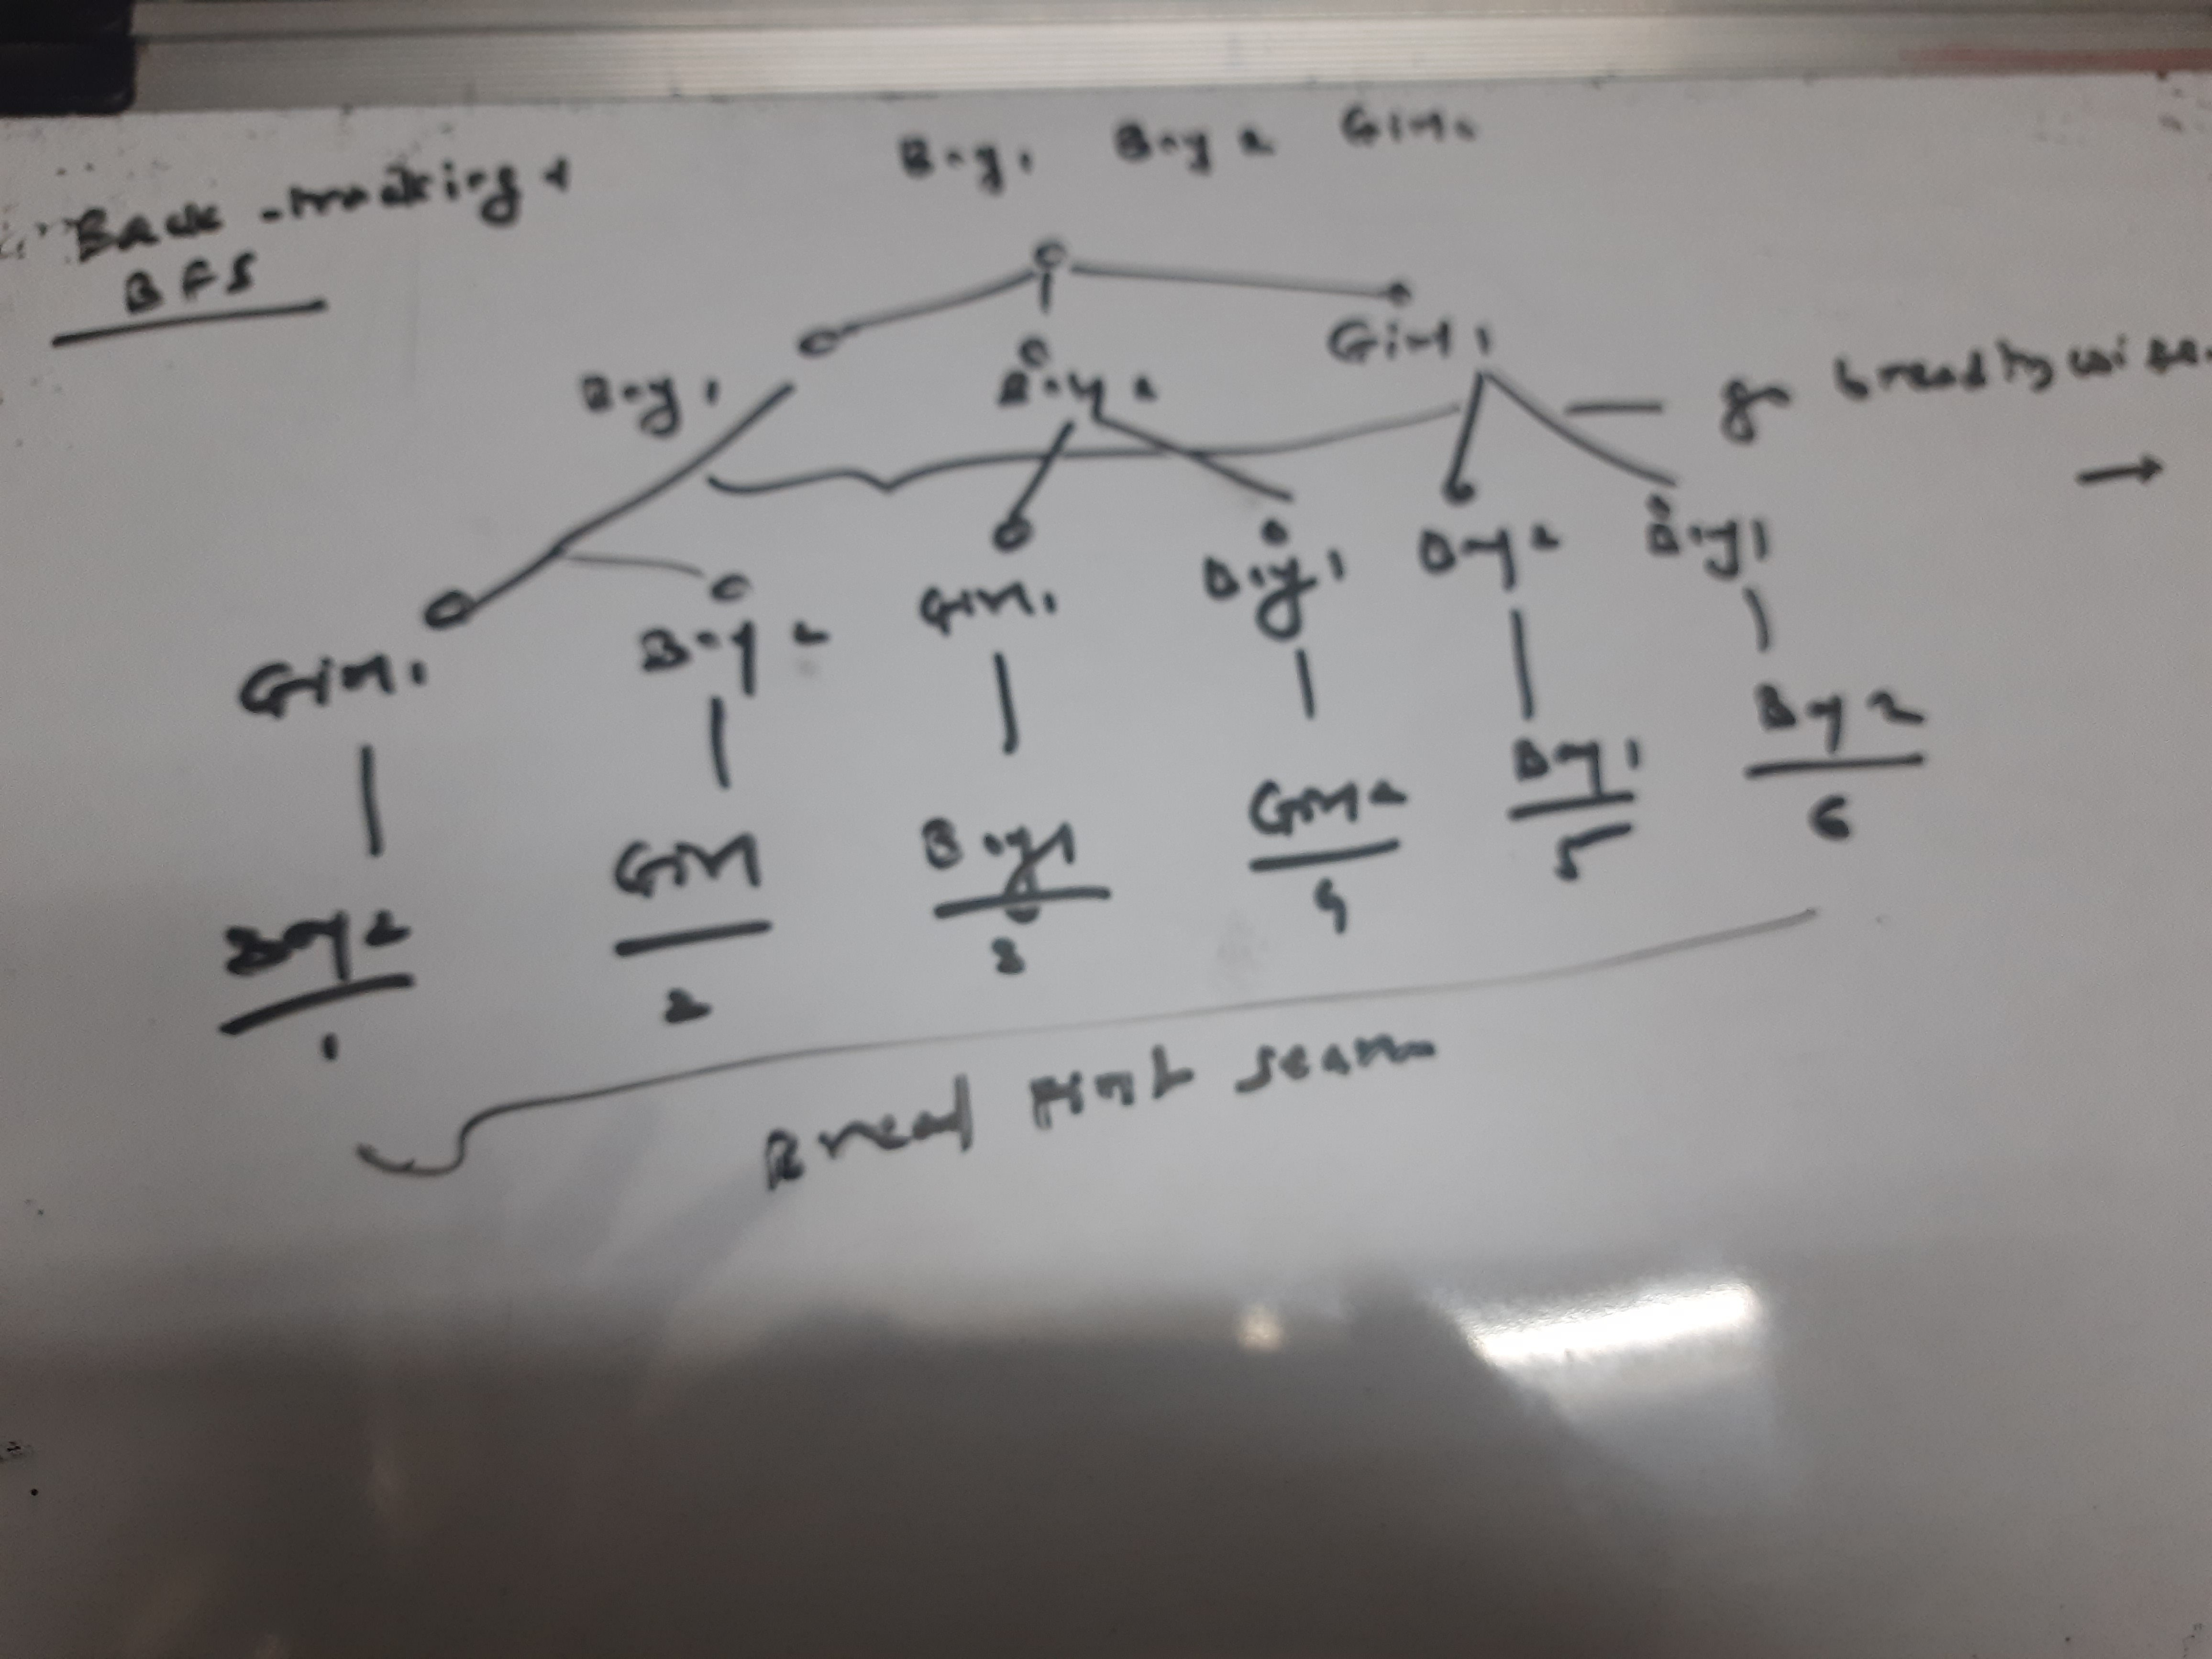 Back-tracking &
BFS
Boy 1 Boy 2 Girl 1
Boy 1 Boy 2 Girl 1
go breadth wise
→
Girl 1 Boy 2 Girl 1 Boy 1 Boy 2 Boy 1
Boy 2 Girl Boy 1 Girl Boy 1 Boy 2
1 2 3 4 5 6
Bread First Sear